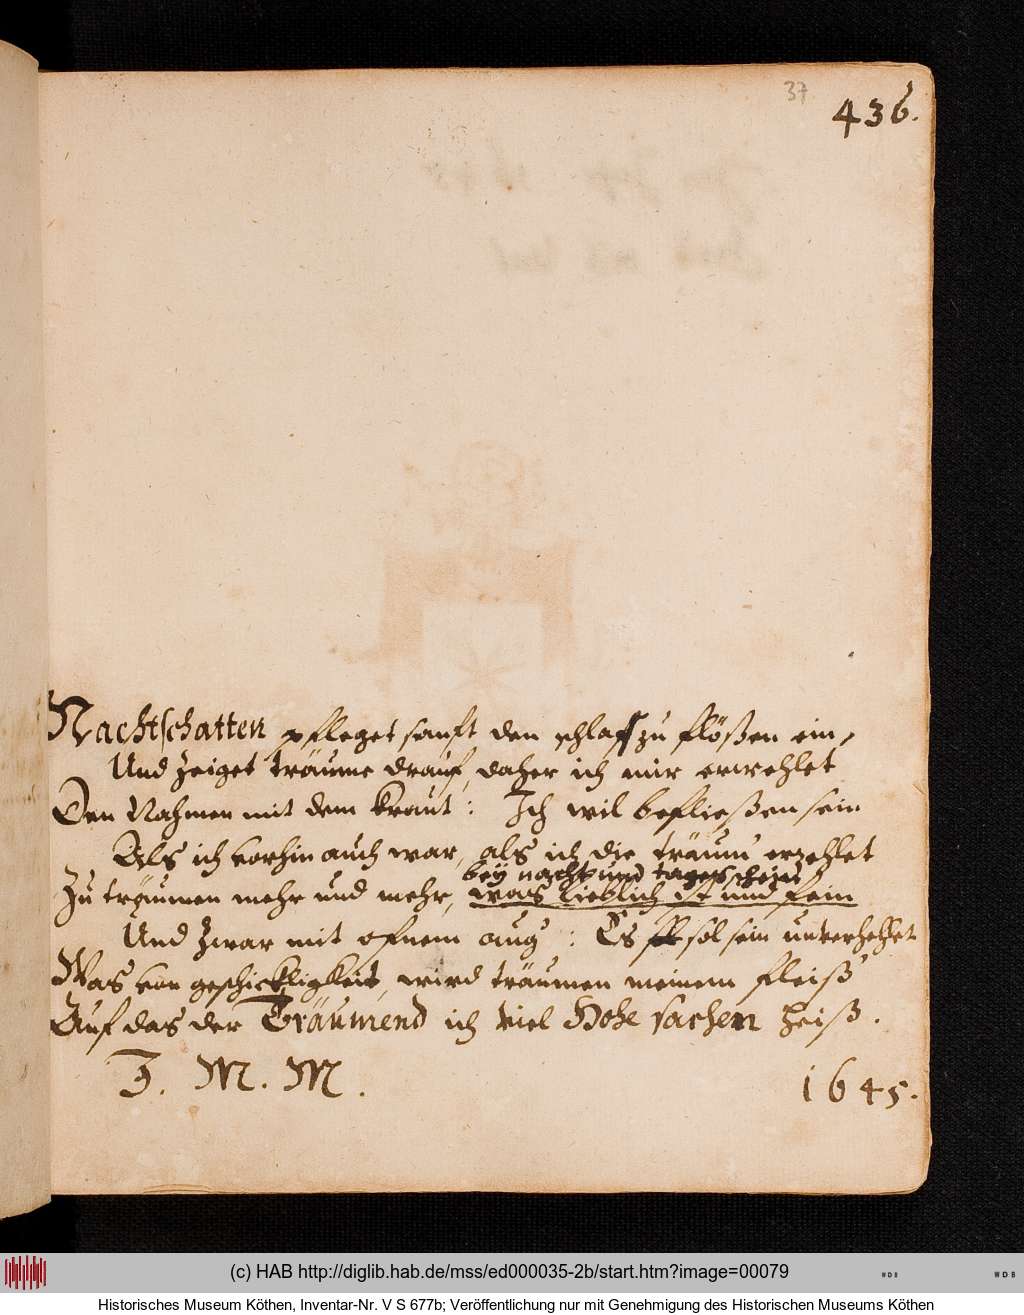 37
436.
Nachtschatten pfleget sanft den schlaff zu flößen ein,
Und zeiget träume drauf, daher ich mir erwehlet
Den Nahmen mit dem kraut: Ich wil befließen sein
Als ich vorhin auch war, als ich die träum' erzehlet
bey nacht und tagesschein
Zu träumen mehr und mehr, was lieblich ist und fein
Und zwar mit ofnem aug': Es sol sein unverhehlet
Was von geschickligkeit, wird träumen meinem fleiß
Auf das der Träumend ich viel Hohe sachen heiß.
T. M. M.
1645.
(c) HAB http://diglib.hab.de/mss/ed000035-2b/start.htm?image=00079
WDB
WDB
Historisches Museum Köthen, Inventar-Nr. V S 677b; Veröffentlichung nur mit Genehmigung des Historischen Museums Köthen